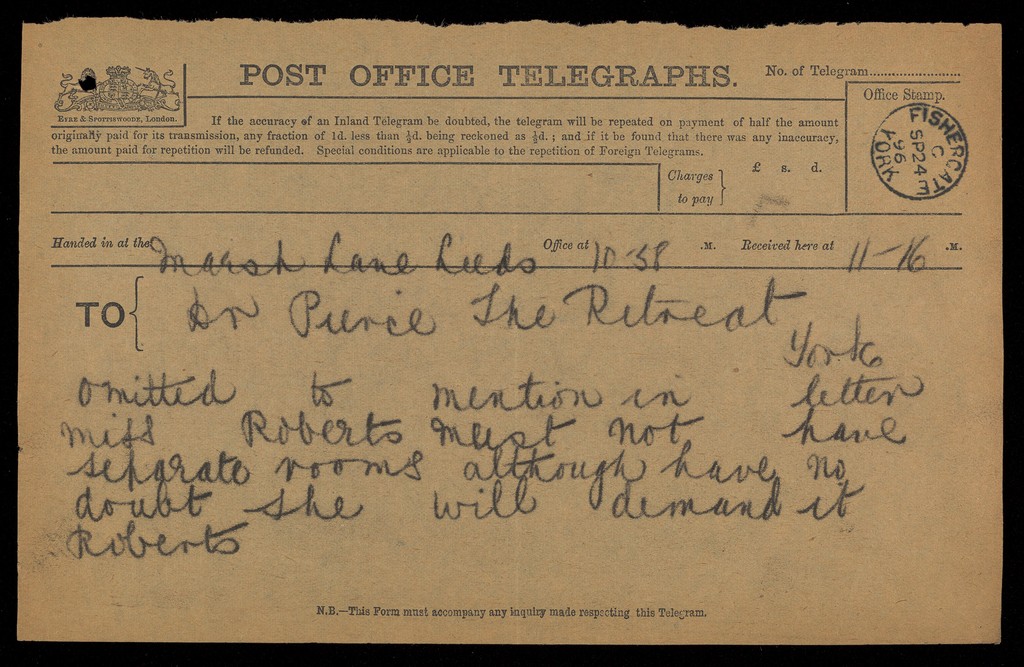 POST OFFICE TELEGRAPHS.
No. of Telegram
EYRE & SPOTTISWOODE, LONDON.
If the accuracy of an Inland Telegram be doubted, the telegram will be repeated on payment of half the amount
originally paid for its transmission, any fraction of 1d. less than ½d. being reckoned as ½d.; and if it be found that there was any inaccuracy,
the amount paid for repetition will be refunded. Special conditions are applicable to the repetition of Foreign Telegrams.
Office Stamp.
FISHERGATE
C
SP 24
96
YORK
Charges
to pay
£ s. d.
Handed in at the Marsh Lane Leeds Office at 10-58 .M. Received here at 11-16 .M.
TO Dr Pierce The Retreat
York
omitted to mention in letter
miss Roberts must not have
separate rooms although have no
doubt she will demand it
Roberts
N.B.—This Form must accompany any inquiry made respecting this Telegram.